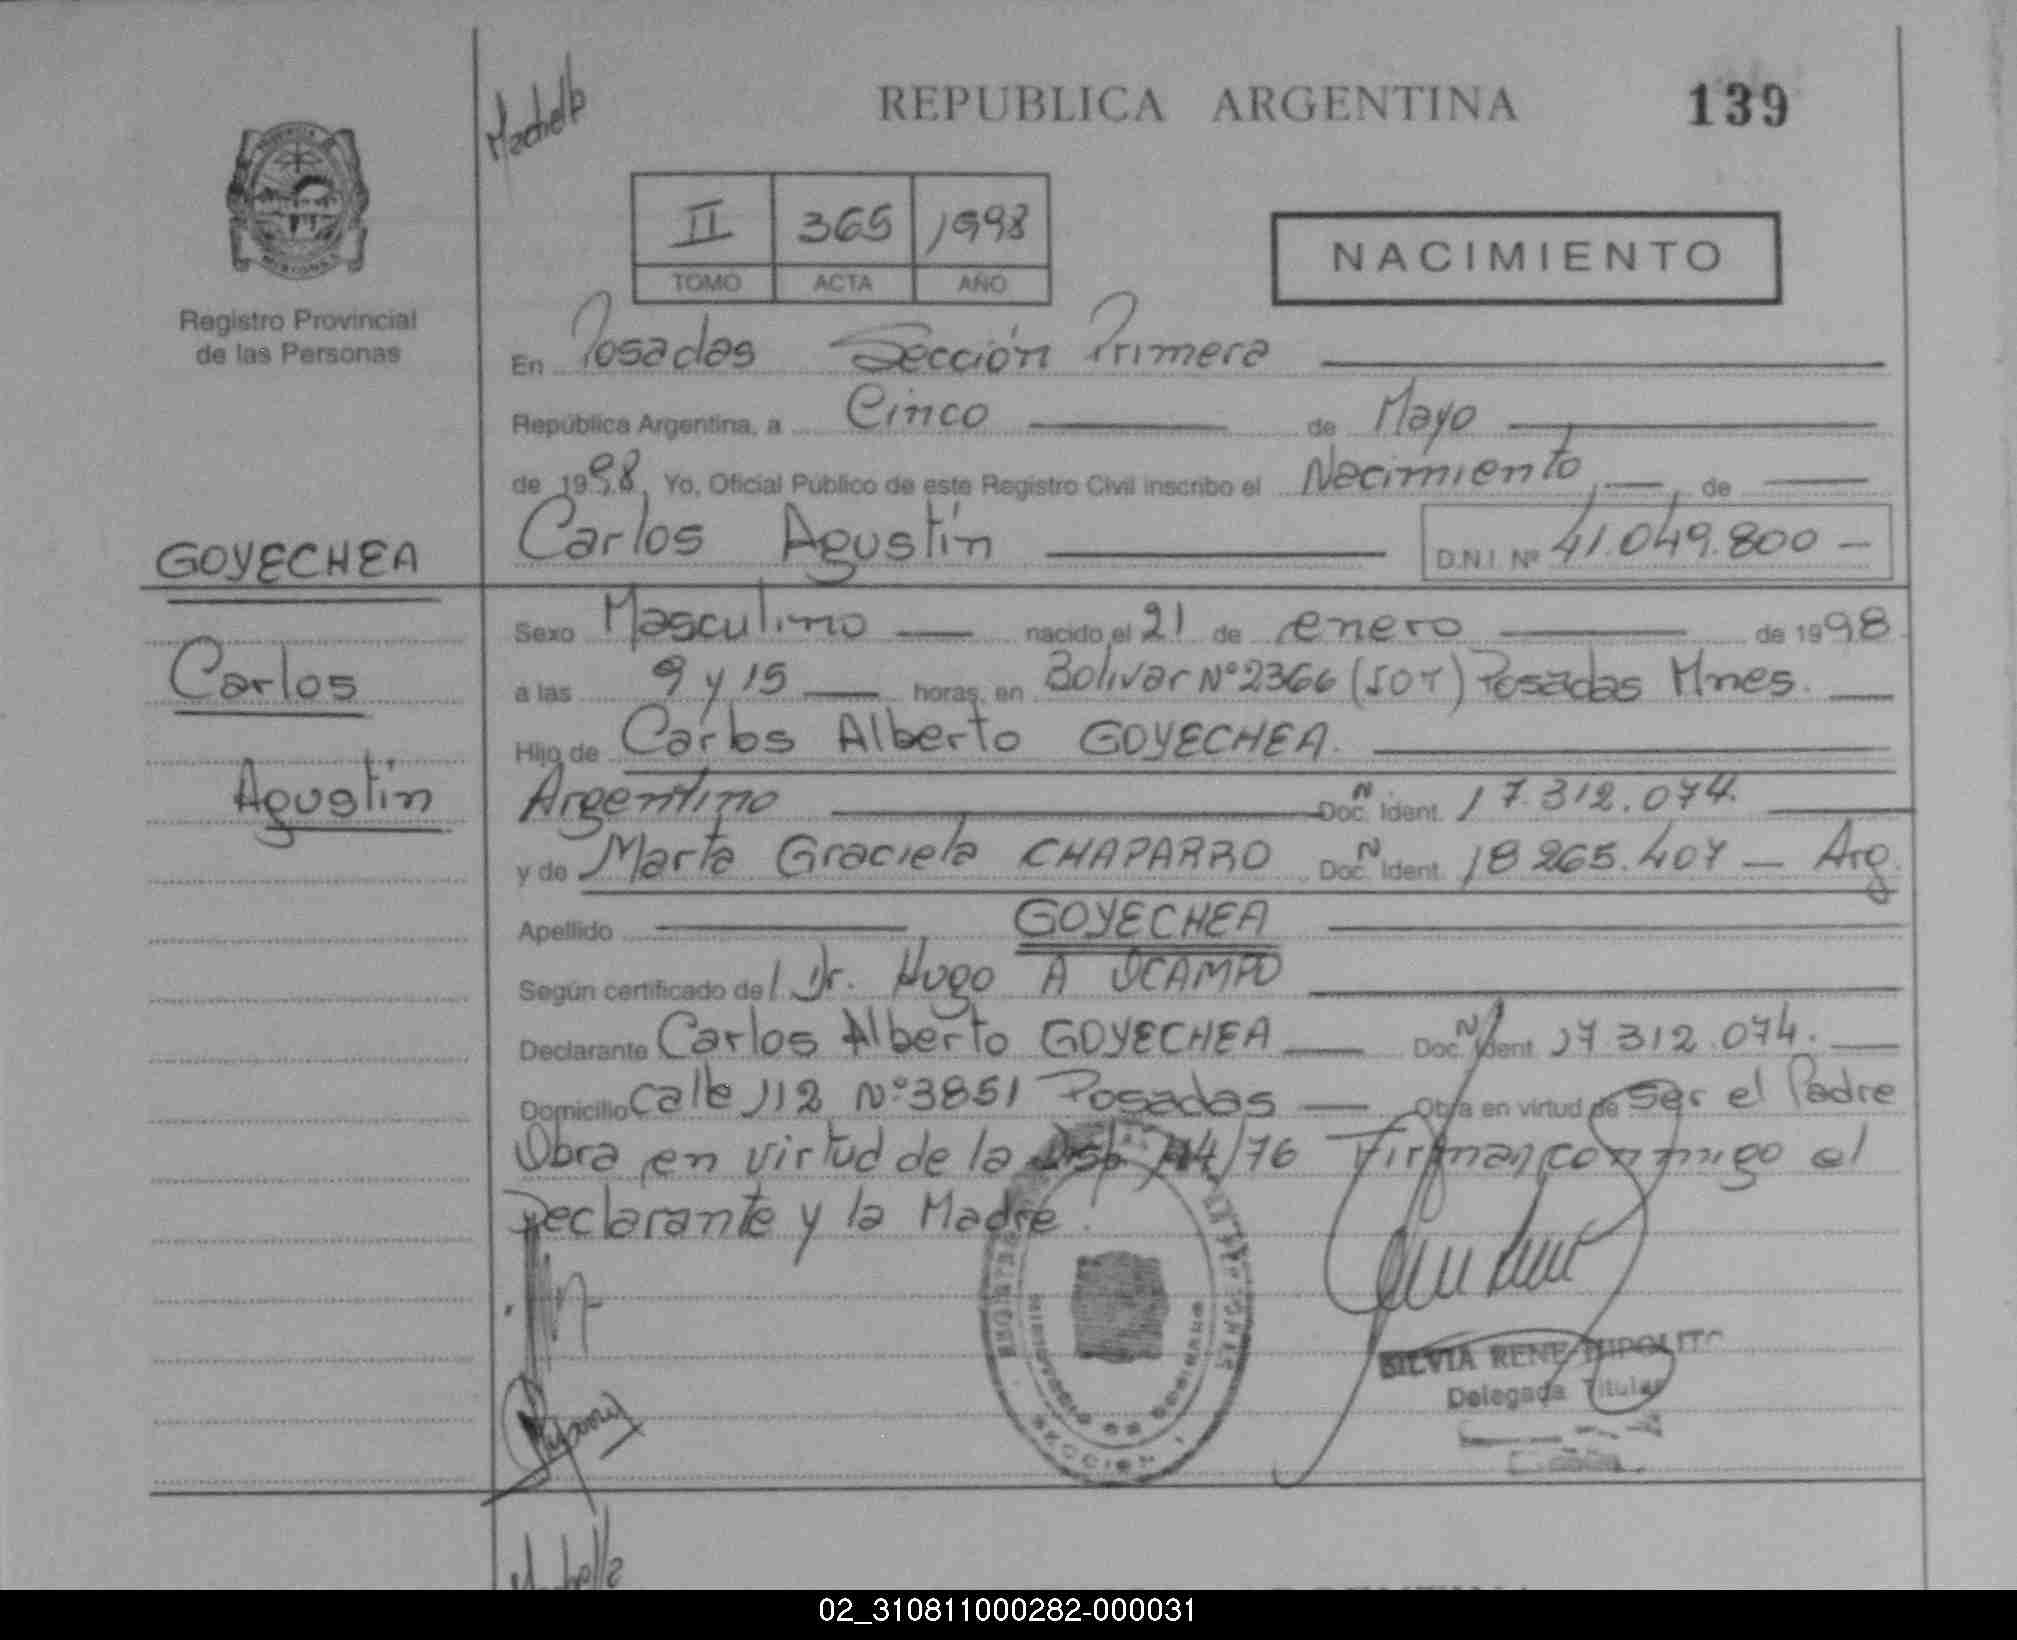 REPUBLICA ARGENTINA
139
II 365 1998
TOMO ACTA AÑO
NACIMIENTO
Registro Provincial
de las Personas
En Posadas Sección Primera
República Argentina, a Cinco de Mayo
de 1998, Yo, Oficial Público de este Registro Civil inscribo el Nacimiento, de
Carlos Agustín D.N.I. Nº 41.049.800
GOYECHEA
Carlos
Agustín
Sexo Masculino nacido el 21 de enero de 1998
a las 9 y 15 horas, en Bolivar Nº 2366 (SOT) Posadas Mnes.
Hijo de Carlos Alberto GOYECHEA.
Argentino Doc. N Ident. 17.312.074.
y de Marta Graciela CHAPARRO Doc. N Ident. 18 265.407 Arg.
Apellido GOYECHEA
Según certificado del Dr. Hugo A OCAMPO
Declarante Carlos Alberto GOYECHEA Doc. N Ident 17 312.074.
Domicilio Calle 112 Nº 3851 Posadas Obra en virtud de Ser el Padre
Obra en virtud de la /76 Firman conmigo el
Declarante y la Madre.
SILVIA RENE HIPOLITO
Delegada Titular
SECCION 1
02_310811000282-000031